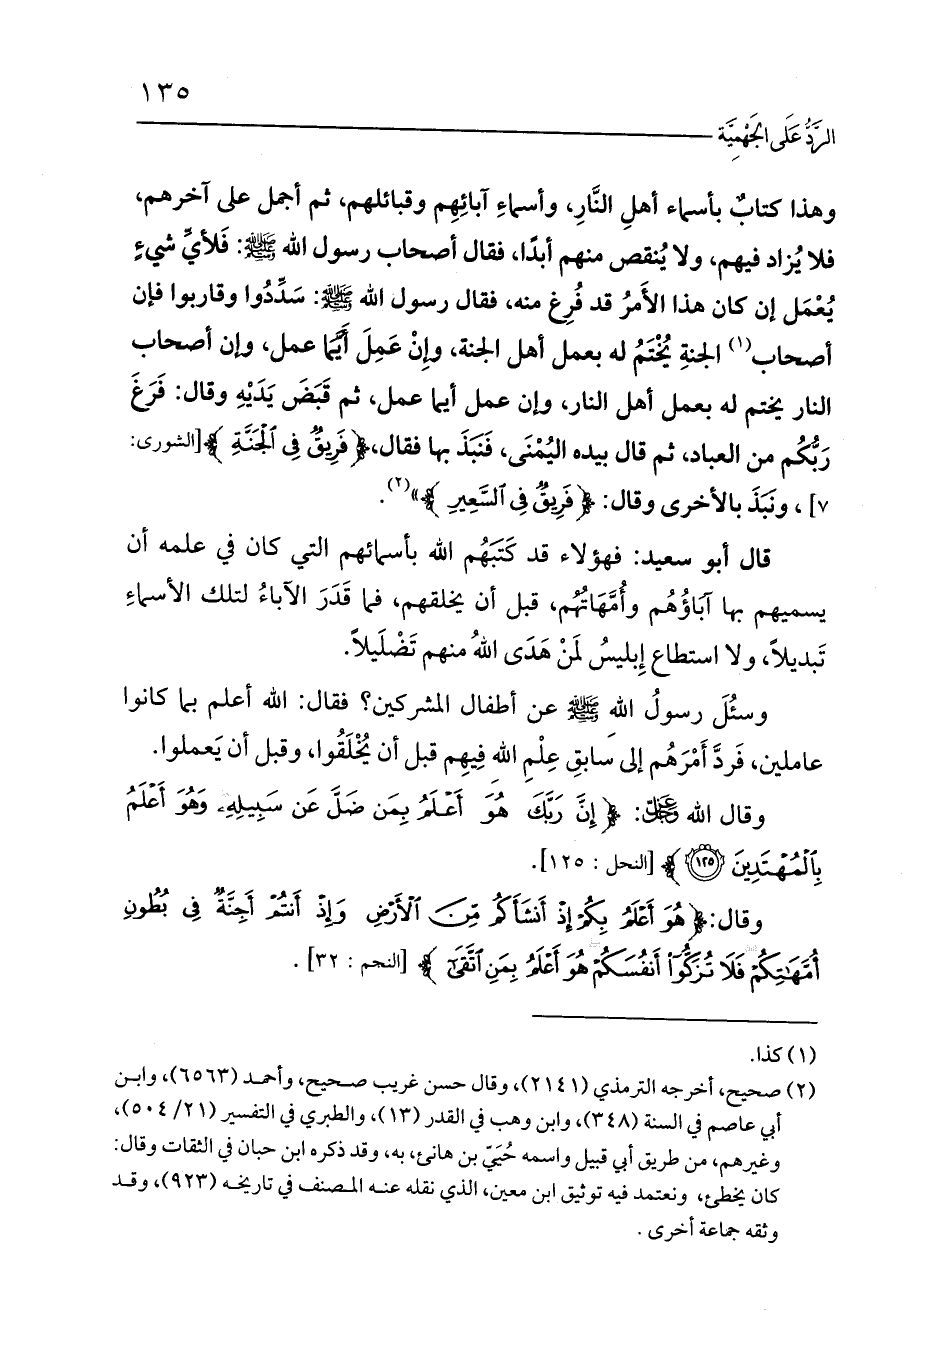 ١٣٥
الرَّدُّ عَلَى الجَهْمِيَّة
وهذا كتابٌ بأسماء أهلِ النَّارِ، وأسماءِ آبائِهِم وقبائلهم، ثم أجمل على آخرهم،
فلا يُزاد فيهم، ولا يُنقص منهم أبدًا، فقال أصحاب رسول الله ﷺ: فَلأيِّ شيءٍ
يُعْمَل إن كان هذا الأَمرُ قد فُرِغ منه، فقال رسول الله ﷺ: سَدِّدُوا وقاربوا فإن
أصحاب(١) الجنةِ يُخْتَمُ له بعمل أهل الجنة، وإنْ عَمِلَ أَيَّما عمل، وإن أصحاب
النار يختم له بعمل أهل النار، وإن عمل أيما عمل، ثم قَبَضَ يَدَيْهِ وقال: فَرَغَ
رَبُّكُم من العباد، ثم قال بيده اليُمْنَى، فَنَبَذَ بها فقال،﴿ فَرِيقٌ فِى ٱلْجَنَّةِ ﴾[الشورى:
٧] ، ونَبَذَ بالأخرى وقال: ﴿ فَرِيقٌ فِى ٱلسَّعِيرِ ﴾»(٢).
قال أبو سعيد: فهؤلاء قد كَتَبَهُم الله بأسمائهم التي كان في علمه أن
يسميهم بها آبَاؤُهُم وأُمَّهَاتُهُم، قبل أن يخلقهم، فما قَدَرَ الآباءُ لتلك الأسماءِ
تَبديلاً، ولا استطاع إِبليسُ لمَنْ هَدَى اللهُ منهم تَضْلَيلاً.
وسئُلَ رسولُ اللهِ ﷺ عن أطفال المشركين؟ فقال: الله أعلم بما كانوا
عاملين، فَردَّ أَمْرَهُم إلى سابقِ عِلْمِ اللهِ فِيهِم قبل أن يُخْلَقُوا، وقبل أن يَعملوا.
وقال الله ﷻ: ﴿ إِنَّ رَبَّكَ هُوَ أَعْلَمُ بِمَن ضَلَّ عَن سَبِيلِهِۦ وَهُوَ أَعْلَمُ
بِٱلْمُهْتَدِينَ ١٢٥ ﴾ [النحل : ١٢٥].
وقال:﴿ هُوَ أَعْلَمُ بِكُمْ إِذْ أَنشَأَكُم مِّنَ ٱلْأَرْضِ وَإِذْ أَنتُمْ أَجِنَّةٌ فِى بُطُونِ
أُمَّهَـٰتِكُمْ فَلَا تُزَكُّوٓا۟ أَنفُسَكُمْ هُوَ أَعْلَمُ بِمَنِ ٱتَّقَىٰٓ ﴾ [النجم : ٣٢] .
(١) كذا.
(٢) صحيح، أخرجه الترمذي (٢١٤١)، وقال حسن غريب صحيح، وأحمد (٦٥٦٣)، وابن
أبي عاصم في السنة (٣٤٨)، وابن وهب في القدر (١٣)، والطبري في التفسير (٢١/ ٥٠٤)،
وغيرهم، من طريق أبي قبيل واسمه حُيَيّ بن هانئ، به، وقد ذكره ابن حبان في الثقات وقال:
كان يخطئ، ونعتمد فيه توثيق ابن معين، الذي نقله عنه المصنف في تاريخه (٩٢٣)، وقد
وثقه جماعة أخرى .